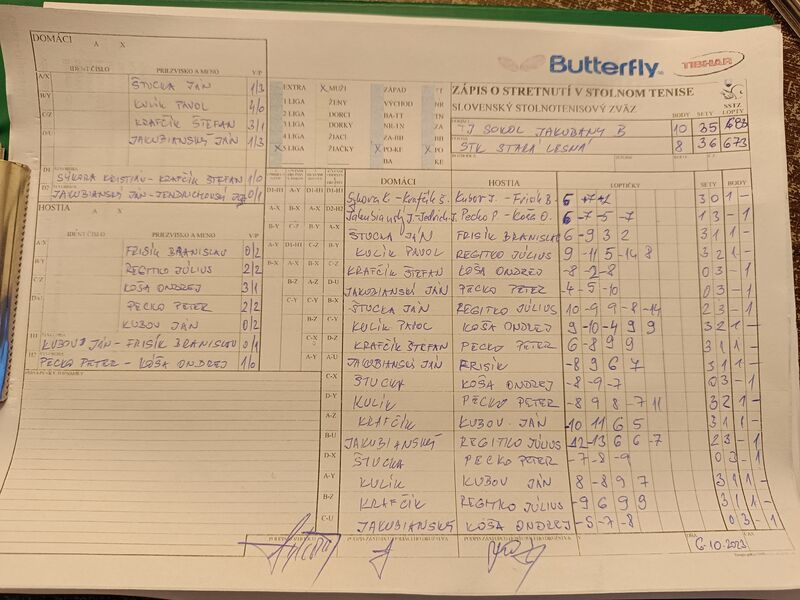 DOMÁCI A X
IDENT.ČÍSLO PRIEZVISKO A MENO V/P
A/X ŠTUCKA JÁN 1/3
B/Y KULÍK PAVOL 4/0
C/Z KRAFČÍK ŠTEFAN 3/1
JAKUBIANSKÝ JÁN 1/3
D1 SÝKORA KRISTIÁN - KRAFČÍK ŠTEFAN 1/0
D2 0/1
HOSTIA A X
IDENT.ČÍSLO PRIEZVISKO A MENO V/P
A/X FRISÍK BRANISLAV 0/2
B/Y REGITKO JÚLIUS 2/2
C/Z KOŠA ONDREJ 3/1
D/U PECKO PETER 2/2
KUBOV JÁN 0/2
H1 KUBOV JÁN - FRISÍK BRANISLAV 0/1
H2 PECKO PETER - KOŠA ONDREJ 1/0
Butterfly TIBHAR
EXTRA X MUŽI ZÁPAD TT
1 LIGA ŽENY VÝCHOD NR
2 LIGA DORCI BA-TT
3 LIGA DORKY NR-TN
4 LIGA ŽIACI ZA-BB
X 5 LIGA ŽIAČKY X PO-KE
ZÁPIS O STRETNUTÍ V STOLNOM TENISE
SLOVENSKÝ STOLNOTENISOVÝ ZVÄZ
BODY SETY SSTZ LOPTY
TJ SOKOL JAKUBANY B 10 35 693
STK STARÁ LESNÁ 8 36 673
DOMÁCI HOSTIA LOPTIČKY SETY BODY
Sýkora K. - Krafčík Š. Kubov J. - Frisík B. 3 0 1 -
Jakubianský J. - Jendrich J. Pecko P - Koša O. 6 -7 -5 -7 1 3 - 1
ŠTUCKA JÁN FRISÍK BRANISLAV 6 -9 3 2 3 1 1 -
KULÍK PAVOL REGITKO JÚLIUS 9 -11 5 -14 8 3 2 1 -
KRAFČÍK ŠTEFAN KOŠA ONDREJ -8 -2 -8 0 3 - 1
JAKUBIANSKÝ JÁN PECKO PETER -4 -5 -10 0 3 - 1
ŠTUCKA JÁN REGITKO JÚLIUS 10 -9 9 -8 -14 2 3 - 1
KULÍK PAVOL KOŠA ONDREJ 9 -10 -4 9 9 3 2 1 -
KRAFČÍK ŠTEFAN PECKO PETER 6 -8 9 9 3 1 1 -
JAKUBIANSKÝ JÁN FRISÍK -8 9 6 7 3 1 1 -
C-X ŠTUCKA KOŠA ONDREJ -8 -9 -7 0 3 - 1
D-Y KULÍK PECKO PETER -8 9 8 -7 11 3 2 1 -
A-Z KRAFČÍK KUBOV JÁN -10 11 6 5 3 1 1 -
B-U JAKUBIANSKÝ REGITKO JÚLIUS -12 -13 6 6 -7 2 3 - 1
D-X ŠTUCKA PECKO PETER -7 -8 -9 0 3 - 1
A-Y KULÍK KUBOV JÁN 8 -8 9 7 3 1 1 -
B-Z KRAFČÍK REGITKO JÚLIUS -9 6 9 9 3 1 1 -
C-U JAKUBIANSKÝ KOŠA ONDREJ -5 -7 -8 0 3 - 1
6.10.2023